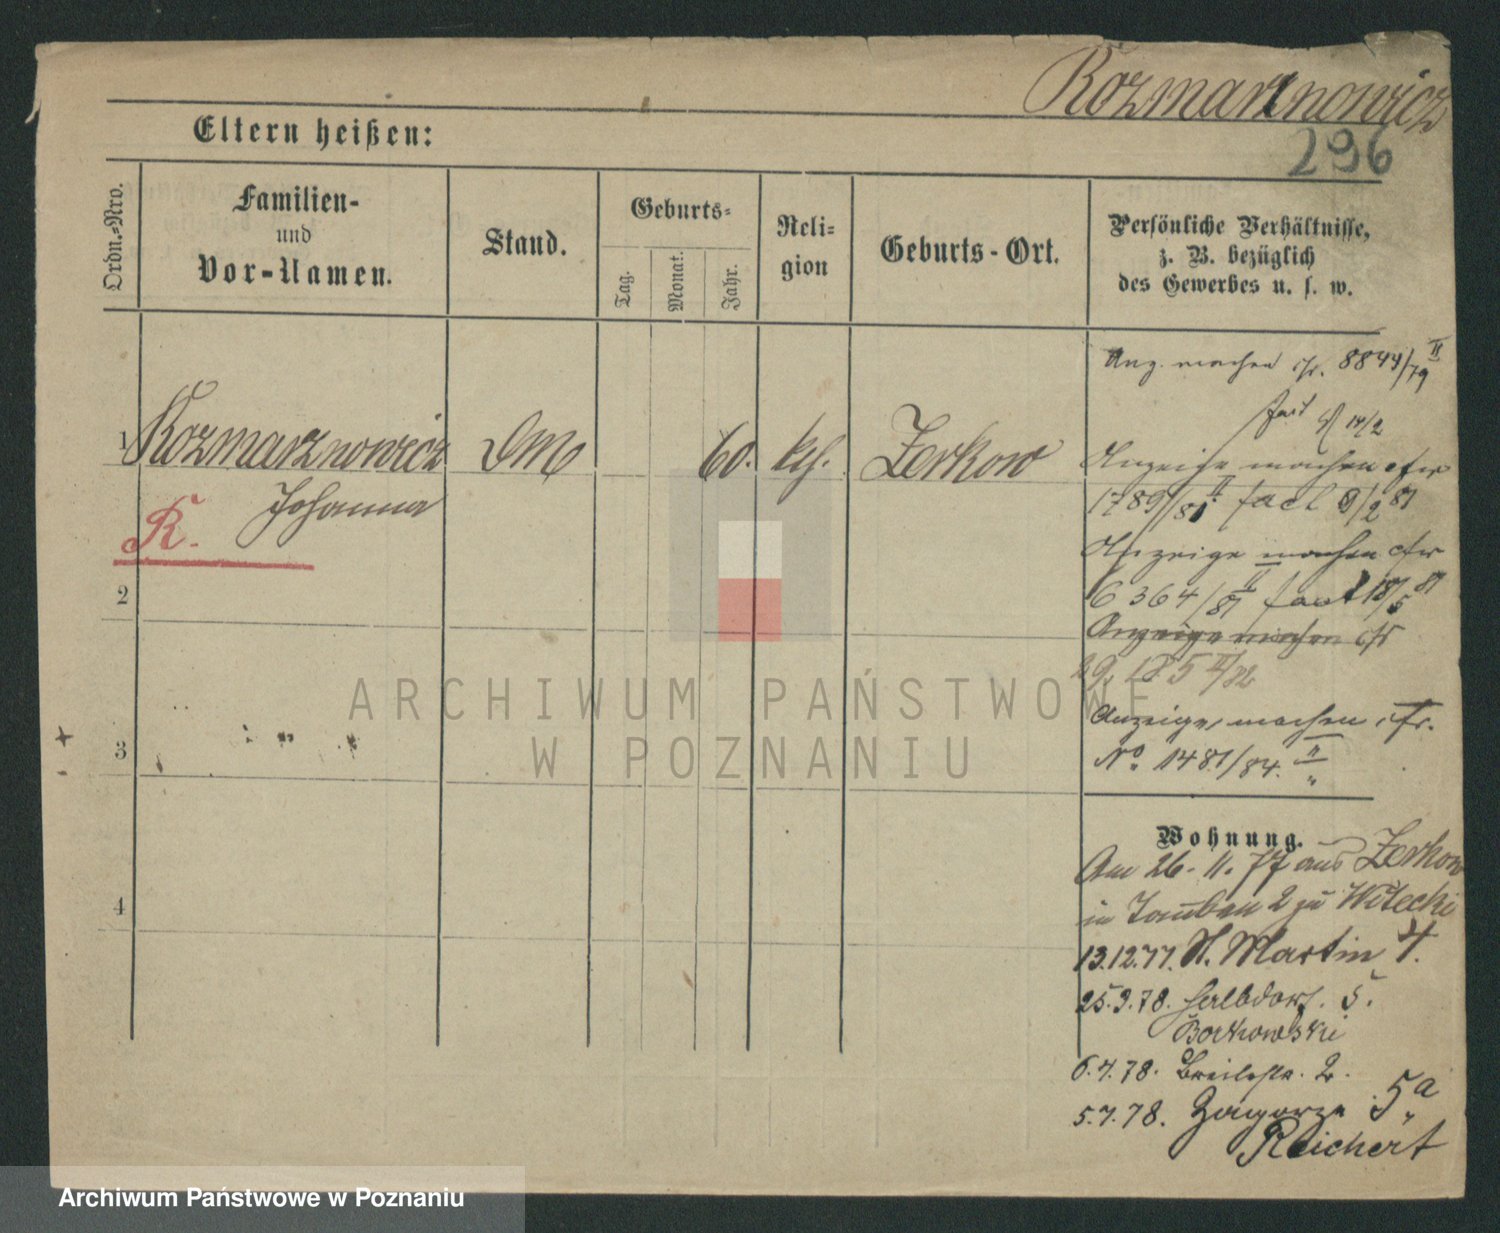 Kozmarznowicz
296
Eltern heißen:
Ordn.-Nro.
Familien-
und
Vor-Namen.
Stand.
Geburts-
Tag.
Monat.
Jahr.
Reli-
gion
Geburts-Ort.
Persönliche Verhältnisse,
z. B. bezüglich
des Gewerbes u. s. w.
Anz. machen cfr. 8844/79 II
fact 14/2
1 Kozmarznowicz DM 60. kth. Zerkow
Johanna
R.
Anzeige machen cfr
1789/81 II fact 9/2 81
Anzeige machen cfr
6364/81 II fact 18/5 81
2
Anzeige machen cfr
Anzeige machen cfr.
No 1481/84. II
3
ARCHIWUM PAŃSTWOWE
W POZNANIU
Wohnung.
Am 26. 11. 77 aus Zerkow
in Tauben 2 zu Witecki
4
13.12.77. St. Martin 4.
25.3.78. Halbdorf. 5.
Borkowski
6.4.78. Breitestr. 2.
5.7.78. Zagorze 5a
Reichert
Archiwum Państwowe w Poznaniu